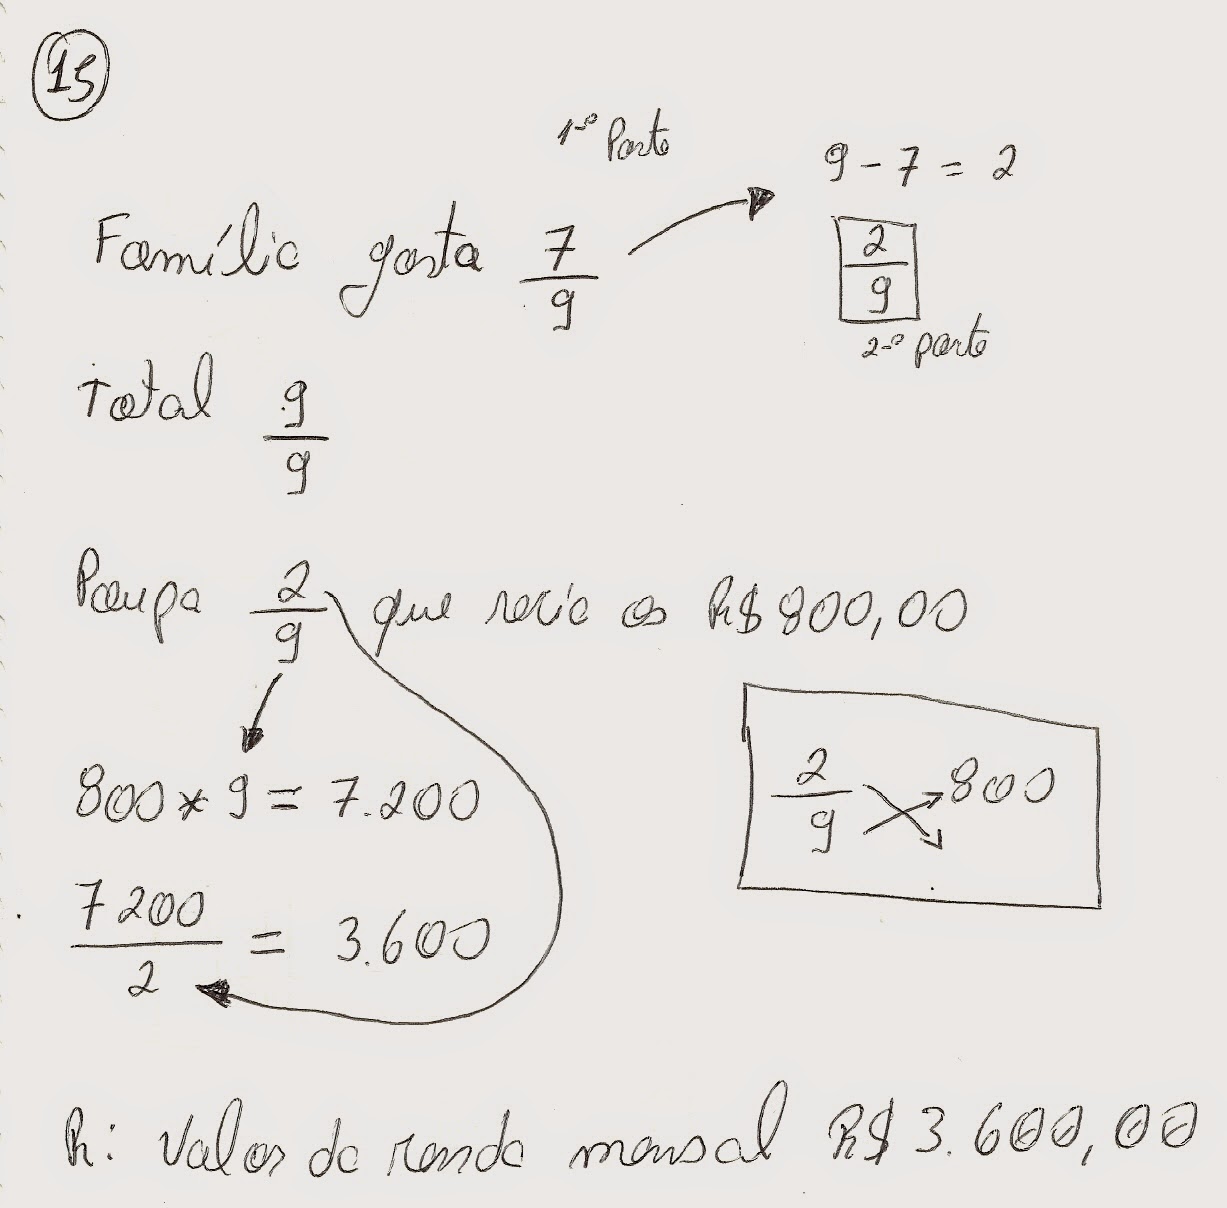 15
1-º Parte
9 - 7 = 2
Família gasta 7/9
2/9
2-º parte
Total 9/9
Poupa 2/9 que seria os R$ 800,00
800 * 9 = 7.200
2/9 800
7200/2 = 3.600
R: Valor da renda mensal R$ 3.600,00